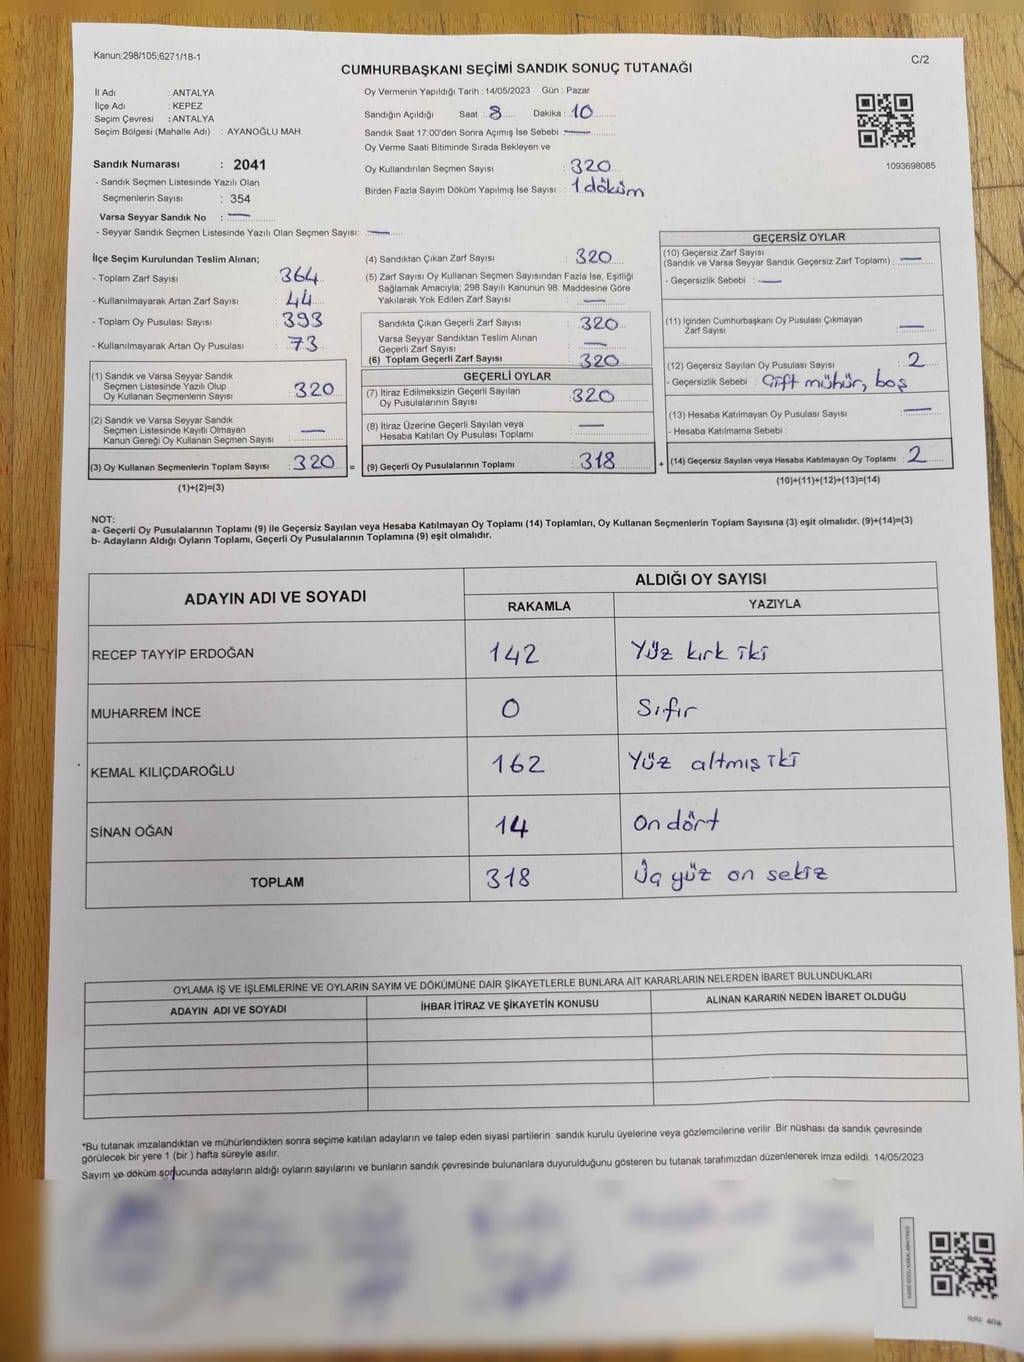 Kanun;298/105;6271/18-1
C/2
CUMHURBAŞKANI SEÇİMİ SANDIK SONUÇ TUTANAĞI
İl Adı : ANTALYA
İlçe Adı : KEPEZ
Seçim Çevresi : ANTALYA
Seçim Bölgesi (Mahalle Adı) : AYANOĞLU MAH.
Sandık Numarası : 2041
- Sandık Seçmen Listesinde Yazılı Olan
Seçmenlerin Sayısı : 354
Varsa Seyyar Sandık No : —
- Seyyar Sandık Seçmen Listesinde Yazılı Olan Seçmen Sayısı: —
Oy Vermenin Yapıldığı Tarih : 14/05/2023 Gün : Pazar
Sandığın Açıldığı Saat : 8 Dakika : 10
Sandık Saat 17:00'den Sonra Açımış İse Sebebi : —
Oy Verme Saati Bitiminde Sırada Bekleyen ve
Oy Kullandırılan Seçmen Sayısı : 320
Birden Fazla Sayım Döküm Yapılmış İse Sayısı : 1 döküm
1093698085
İlçe Seçim Kurulundan Teslim Alınan;
- Toplam Zarf Sayısı : 364
- Kullanılmayarak Artan Zarf Sayısı : 44
- Toplam Oy Pusulası Sayısı : 393
- Kullanılmayarak Artan Oy Pusulası : 73
(1) Sandık ve Varsa Seyyar Sandık
Seçmen Listesinde Yazılı Olup
Oy Kullanan Seçmenlerin Sayısı : 320
(2) Sandık ve Varsa Seyyar Sandık
Seçmen Listesinde Kayıtlı Olmayan
Kanun Gereği Oy Kullanan Seçmen Sayısı : —
(3) Oy Kullanan Seçmenlerin Toplam Sayısı : 320 =
(1)+(2)=(3)
(4) Sandıktan Çıkan Zarf Sayısı : 320
(5) Zarf Sayısı Oy Kullanan Seçmen Sayısından Fazla İse, Eşitliği
Sağlamak Amacıyla; 298 Sayılı Kanunun 98. Maddesine Göre
Yakılarak Yok Edilen Zarf Sayısı : —
Sandıkta Çıkan Geçerli Zarf Sayısı : 320
Varsa Seyyar Sandıktan Teslim Alınan
Geçerli Zarf Sayısı : —
(6) Toplam Geçerli Zarf Sayısı : 320
GEÇERLİ OYLAR
(7) İtiraz Edilmeksizin Geçerli Sayılan
Oy Pusulalarının Sayısı : 320
(8) İtiraz Üzerine Geçerli Sayılan veya
Hesaba Katılan Oy Pusulası Toplamı : —
(9) Geçerli Oy Pusulalarının Toplamı : 318 +
GEÇERSİZ OYLAR
(10) Geçersiz Zarf Sayısı
(Sandık ve Varsa Seyyar Sandık Geçersiz Zarf Toplamı) : —
- Geçersizlik Sebebi : —
(11) İçinden Cumhurbaşkanı Oy Pusulası Çıkmayan
Zarf Sayısı : —
(12) Geçersiz Sayılan Oy Pusulası Sayısı : 2
- Geçersizlik Sebebi : Çift mühür, boş
(13) Hesaba Katılmayan Oy Pusulası Sayısı : —
- Hesaba Katılmama Sebebi :
(14) Geçersiz Sayılan veya Hesaba Katılmayan Oy Toplamı : 2
(10)+(11)+(12)+(13)=(14)
NOT:
a- Geçerli Oy Pusulalarının Toplamı (9) ile Geçersiz Sayılan veya Hesaba Katılmayan Oy Toplamı (14) Toplamları, Oy Kullanan Seçmenlerin Toplam Sayısına (3) eşit olmalıdır. (9)+(14)=(3)
b- Adayların Aldığı Oyların Toplamı, Geçerli Oy Pusulalarının Toplamına (9) eşit olmalıdır.
ADAYIN ADI VE SOYADI ALDIĞI OY SAYISI
RAKAMLA YAZIYLA
RECEP TAYYİP ERDOĞAN 142 Yüz kırk iki
MUHARREM İNCE 0 Sıfır
KEMAL KILIÇDAROĞLU 162 Yüz altmış iki
SİNAN OĞAN 14 On dört
TOPLAM 318 Üç yüz on sekiz
OYLAMA İŞ VE İŞLEMLERİNE VE OYLARIN SAYIM VE DÖKÜMÜNE DAİR ŞİKAYETLERLE BUNLARA AİT KARARLARIN NELERDEN İBARET BULUNDUKLARI
ADAYIN ADI VE SOYADI İHBAR İTİRAZ VE ŞİKAYETİN KONUSU ALINAN KARARIN NEDEN İBARET OLDUĞU
*Bu tutanak imzalandıktan ve mühürlendikten sonra seçime katılan adayların ve talep eden siyasi partilerin sandık kurulu üyelerine veya gözlemcilerine verilir .Bir nüshası da sandık çevresinde
görülecek bir yere 1 (bir ) hafta süreyle asılır.
Sayım ve döküm sonucunda adayların aldığı oyların sayılarını ve bunların sandık çevresinde bulunanlara duyurulduğunu gösteren bu tutanak tarafımızdan düzenlenerek imza edildi. 14/05/2023